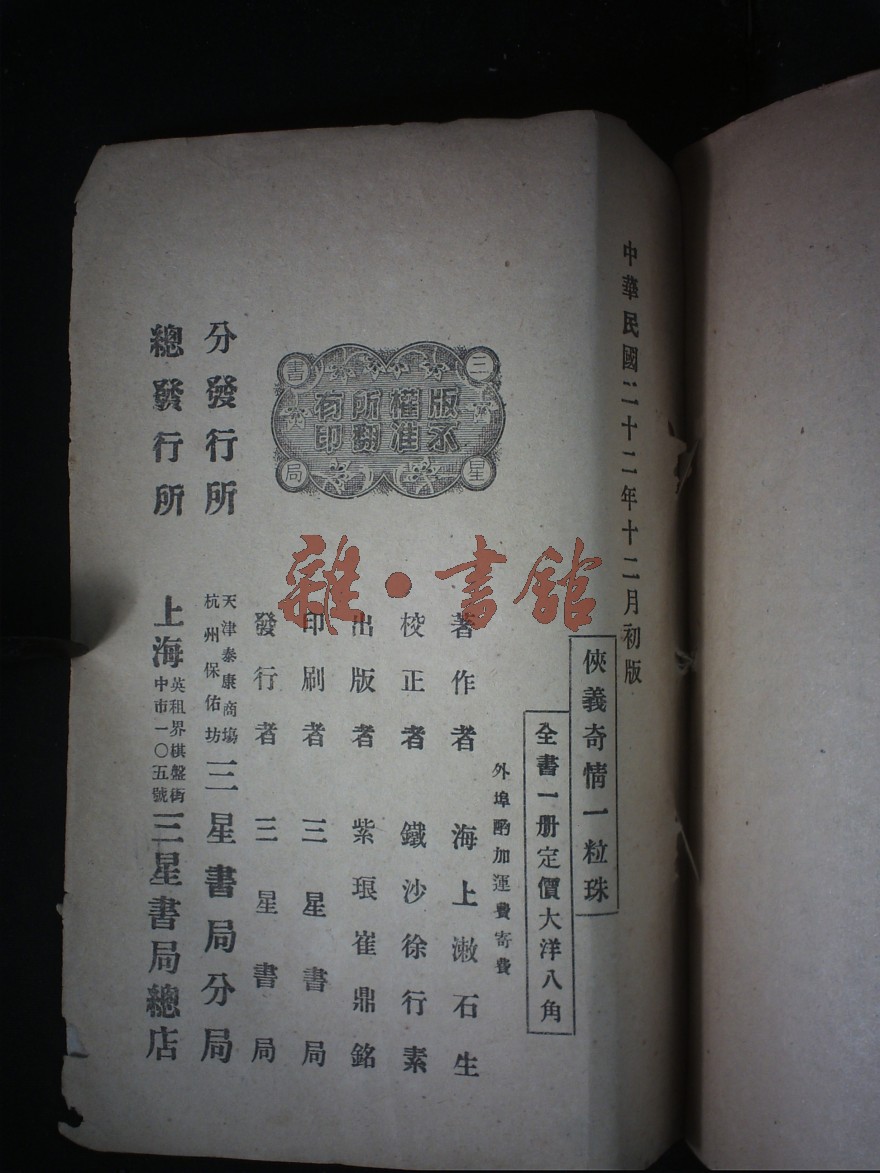 中華民國二十二年十二月初版
俠義奇情一粒珠
全書一册定價大洋八角
外埠酌加運費寄費
著作者 海上漱石生
校正者 鐵沙徐行素
出版者 紫琅崔鼎銘
印刷者 三星書局
發行者 三星書局
分發行所 天津泰康商場 杭州保佑坊 三星書局分局
總發行所 上海 英租界棋盤街 中市一〇五號 三星書局總店
三星書局
版權所有
不准翻印
雜·書館